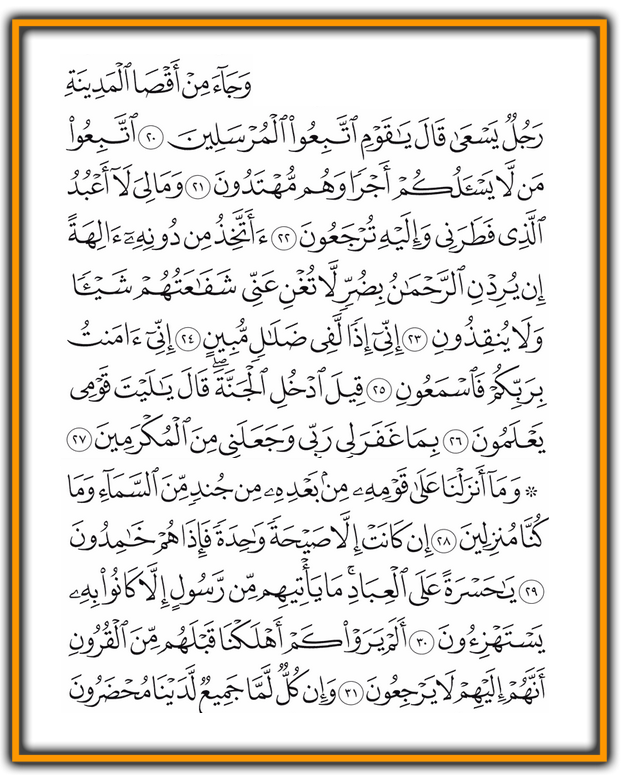 وَجَآءَ مِنْ أَقْصَا ٱلْمَدِينَةِ
رَجُلٌ يَسْعَىٰ قَالَ يَـٰقَوْمِ ٱتَّبِعُوا۟ ٱلْمُرْسَلِينَ ٢٠ ٱتَّبِعُوا۟
مَن لَّا يَسْـَٔلُكُمْ أَجْرًا وَهُم مُّهْتَدُونَ ٢١ وَمَالِىَ لَآ أَعْبُدُ
ٱلَّذِى فَطَرَنِى وَإِلَيْهِ تُرْجَعُونَ ٢٢ ءَأَتَّخِذُ مِن دُونِهِۦٓ ءَالِهَةً
إِن يُرِدْنِ ٱلرَّحْمَـٰنُ بِضُرٍّ لَّا تُغْنِ عَنِّى شَفَـٰعَتُهُمْ شَيْـًٔا
وَلَا يُنقِذُونِ ٢٣ إِنِّىٓ إِذًا لَّفِى ضَلَـٰلٍ مُّبِينٍ ٢٤ إِنِّىٓ ءَامَنتُ
بِرَبِّكُمْ فَٱسْمَعُونِ ٢٥ قِيلَ ٱدْخُلِ ٱلْجَنَّةَ ۖ قَالَ يَـٰلَيْتَ قَوْمِى
يَعْلَمُونَ ٢٦ بِمَا غَفَرَ لِى رَبِّى وَجَعَلَنِى مِنَ ٱلْمُكْرَمِينَ ٢٧
* وَمَآ أَنزَلْنَا عَلَىٰ قَوْمِهِۦ مِنۢ بَعْدِهِۦ مِن جُندٍ مِّنَ ٱلسَّمَآءِ وَمَا
كُنَّا مُنزِلِينَ ٢٨ إِن كَانَتْ إِلَّا صَيْحَةً وَٰحِدَةً فَإِذَا هُمْ خَـٰمِدُونَ
٢٩ يَـٰحَسْرَةً عَلَى ٱلْعِبَادِ ۚ مَا يَأْتِيهِم مِّن رَّسُولٍ إِلَّا كَانُوا۟ بِهِۦ
يَسْتَهْزِءُونَ ٣٠ أَلَمْ يَرَوْا۟ كَمْ أَهْلَكْنَا قَبْلَهُم مِّنَ ٱلْقُرُونِ
أَنَّهُمْ إِلَيْهِمْ لَا يَرْجِعُونَ ٣١ وَإِن كُلٌّ لَّمَّا جَمِيعٌ لَّدَيْنَا مُحْضَرُونَ